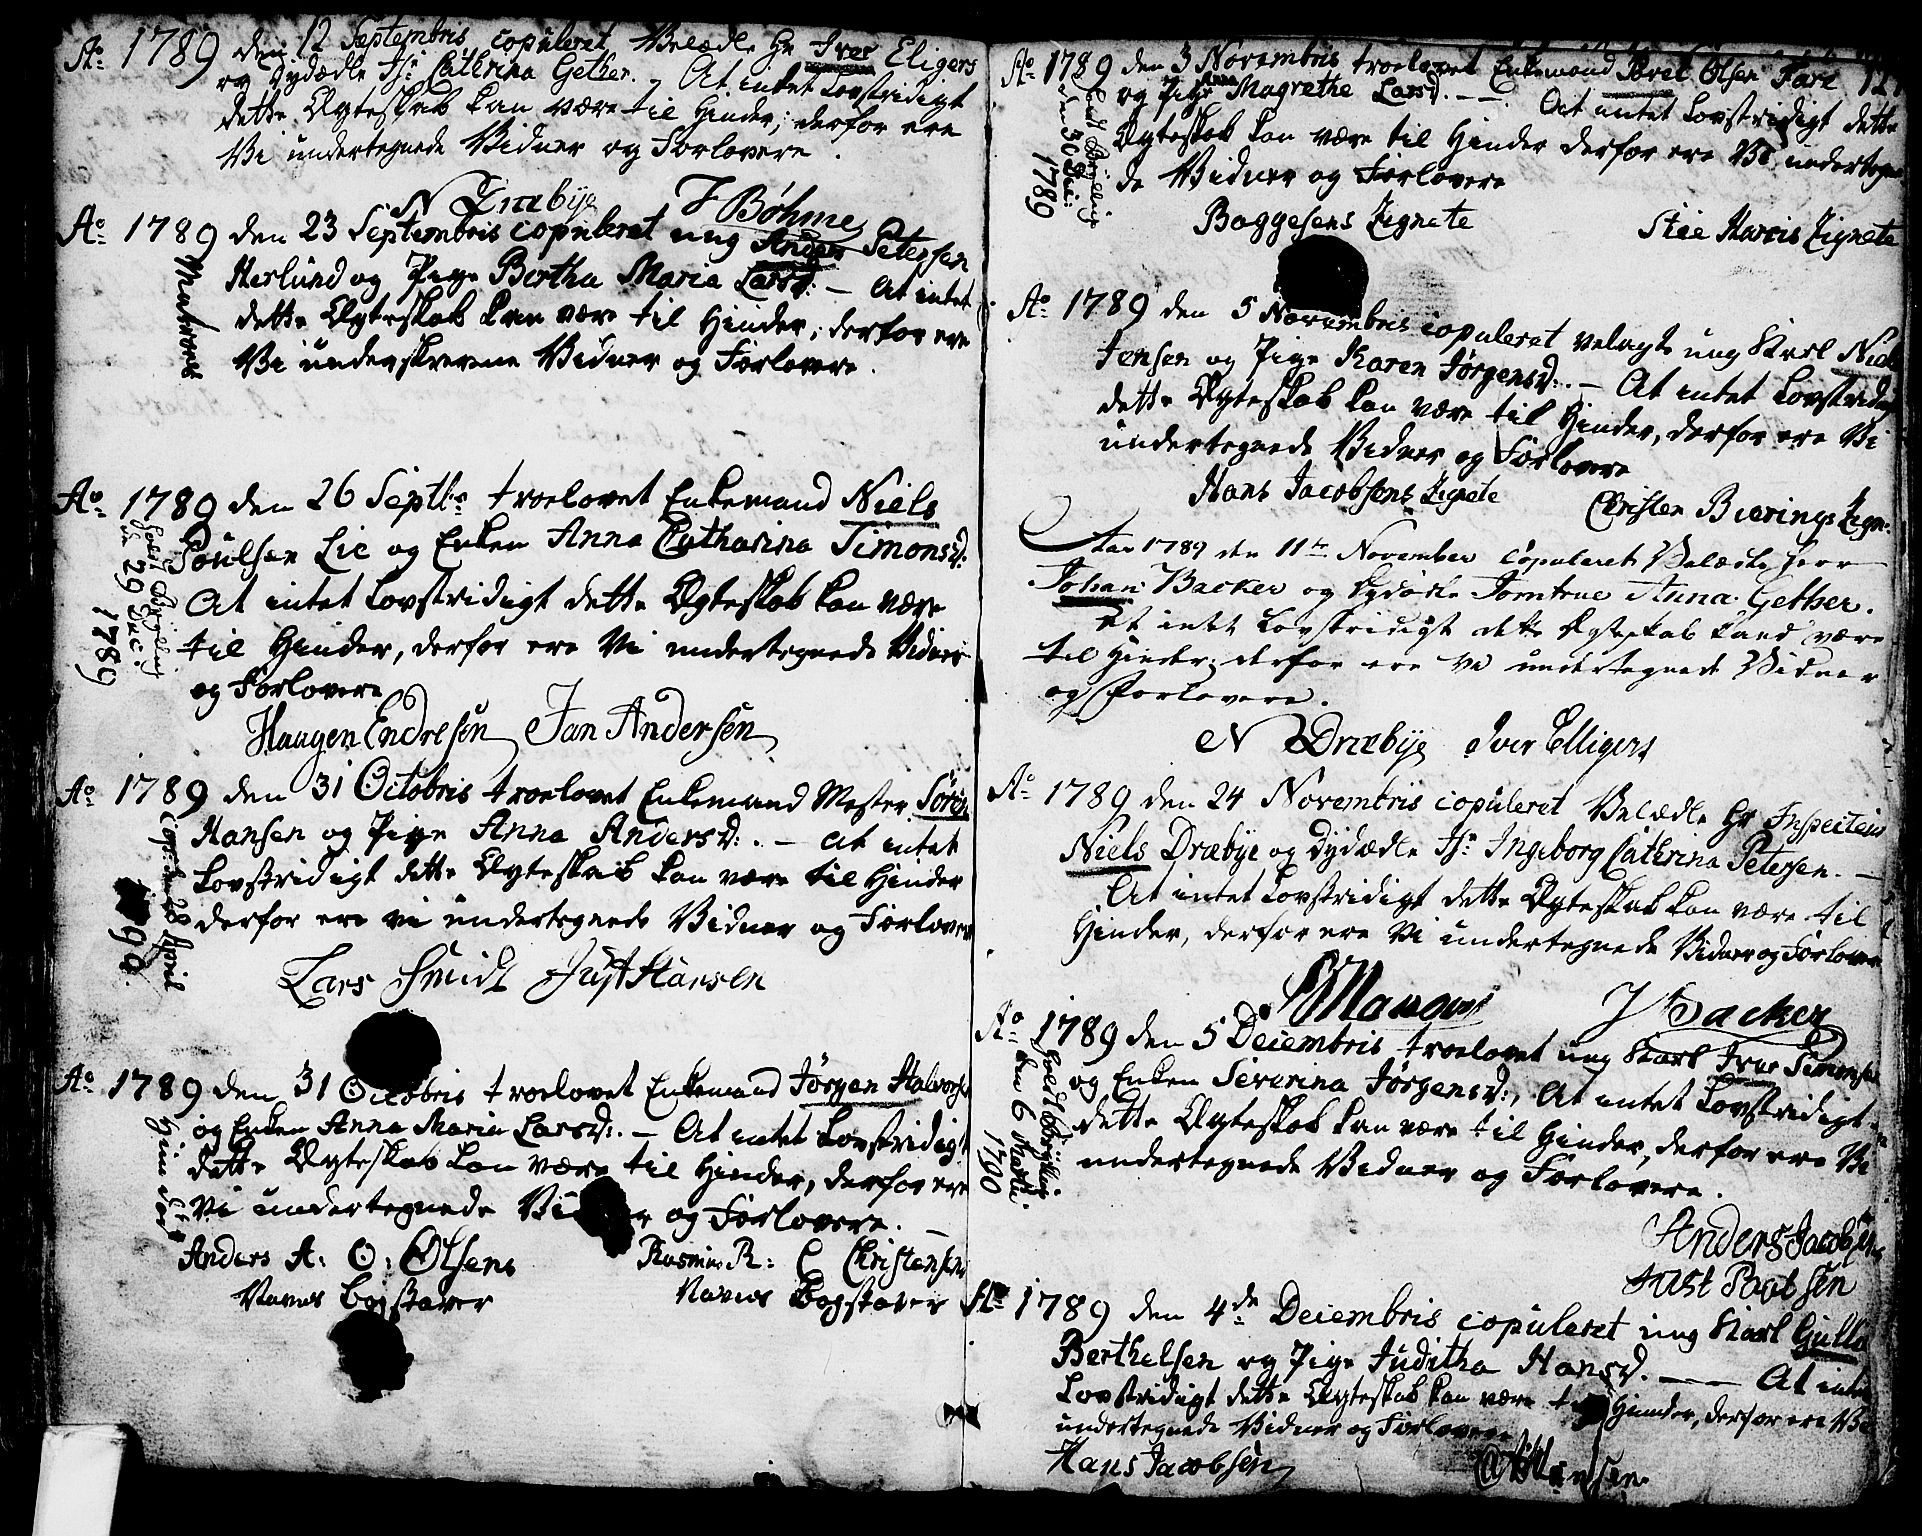 Ao 1789 den 12 Septembris copuleret Velædle Hr Iver Eligers
og Dydædle Jfr Cathrina Gether. At intet Lovstridigt
dette Ægteskab kan være til Hinder; derfor ere
Vi undertegnede Vidner og Forlovere.
N Dræbye J Bøhme
Ao 1789 den 23 Septembris copuleret ung Anders Petersen
Herlund og Pige Bertha Maria Larsd: – At intet
dette Ægteskab kan være til Hinder, derfor ere
Vi underskrevne Vidner og Forlovere.
Matros
Ao 1789 den 26 Septbr troelovet Enkemand Niels
Poulsen Lie og Enken Anna Catharina Simonsd:
At intet Lovstridigt dette Ægteskab kan være
til Hinder, derfor ere Vi undertegnede Vidner
og Forlovere
holdt Brÿllup
den 29 Dec:
1789
Haagen Endresen Jan Andersen
Ao 1789 den 31 Octobris troelovet Enkemand Mester Sören
Hansen og Pige Anna Andersd:. – At intet
Lovstridigt dette Ægteskab kan være til Hinder
derfor ere vi undertegnede Vidner og Forlover
Cop: den 28 April
90
Lars Smidt Just Hansen
Ao 1789 den 31 Octobris troelovet Enkemand Jörgen Halvors
og Enken Anna Maria Larsd:. – At intet Lovstridigt
dette Ægteskab kan være til Hinder, derfor ere
Vi undertegnede Vidner og Forlovere. –
hun død
Anders A: O: Olsens Rasmus R: C Christensens
Navns Bogstaver Navns Bogstaver
Ao 1789 den 3 Novembris troelovet Enkemand Povel Olsen
og Pige Anna Magrethe Larsd. – –. At intet Lovstridigt dette
Ægteskab kan være til Hinder derfor ere Vi undertegne
de Vidner og Forlovere
holdt Brÿllup
den 30 Dec:
1789
Baggesens Zignete Stie Harris Zignete
Ao 1789 den 5 Novembris copuleret velagte ung Karl Niels
Jensen og Pige Karen Jörgensd:. – At intet Lovstridigt
dette Ægteskab kan være til Hinder, derfor ere Vi
undertegnede Vidner og Forlovere
Hans Jacobsens Zignete Christen Bierings Zign:
Aar 1789 den 11te November Copuleret Velædle herr
Johan Backer og Dydædle Jomfrue Anna Gether.
At intet Lovstridigt dette Ægteskab kand være
til Hinder; derfor ere Vi undertegnede Vidner
og Forlovere.
N Dræbye Iver Elligers
Ao 1789 den 24 Novembris copuleret Velædle Hr Inspecteur
Niels Dræbye og Dydædle Jfr Ingeborg Cathrina Petersen. –
At intet Lovstridigt dette Ægteskab kan være til
Hinder, derfor ere Vi undertegnede Vidner og Forlovere
J Backer
Ao 1789 den 5 Decembris troelovet ung Karl Iver Simonsen
og Enken Severina Jörgensd:, At intet Lovstridigt
dette Ægteskab kan være til Hinder, derfor ere Vi
undertegnede Vidner og Forlovere.
holdt Brÿllup
den 6 Martii
1790
Anders Jacobsen
Just Povlsen
Ao 1789 den 4de Decembris copuleret ung Karl Gullo
Berthelsen og Pige Juditha Hansd. – – At intet
Lovstridigt dette Ægteskab kan være til Hinder, derfor ere Vi
undertegnede Vidner og Forlovere
Hans Jacobsen Hansen